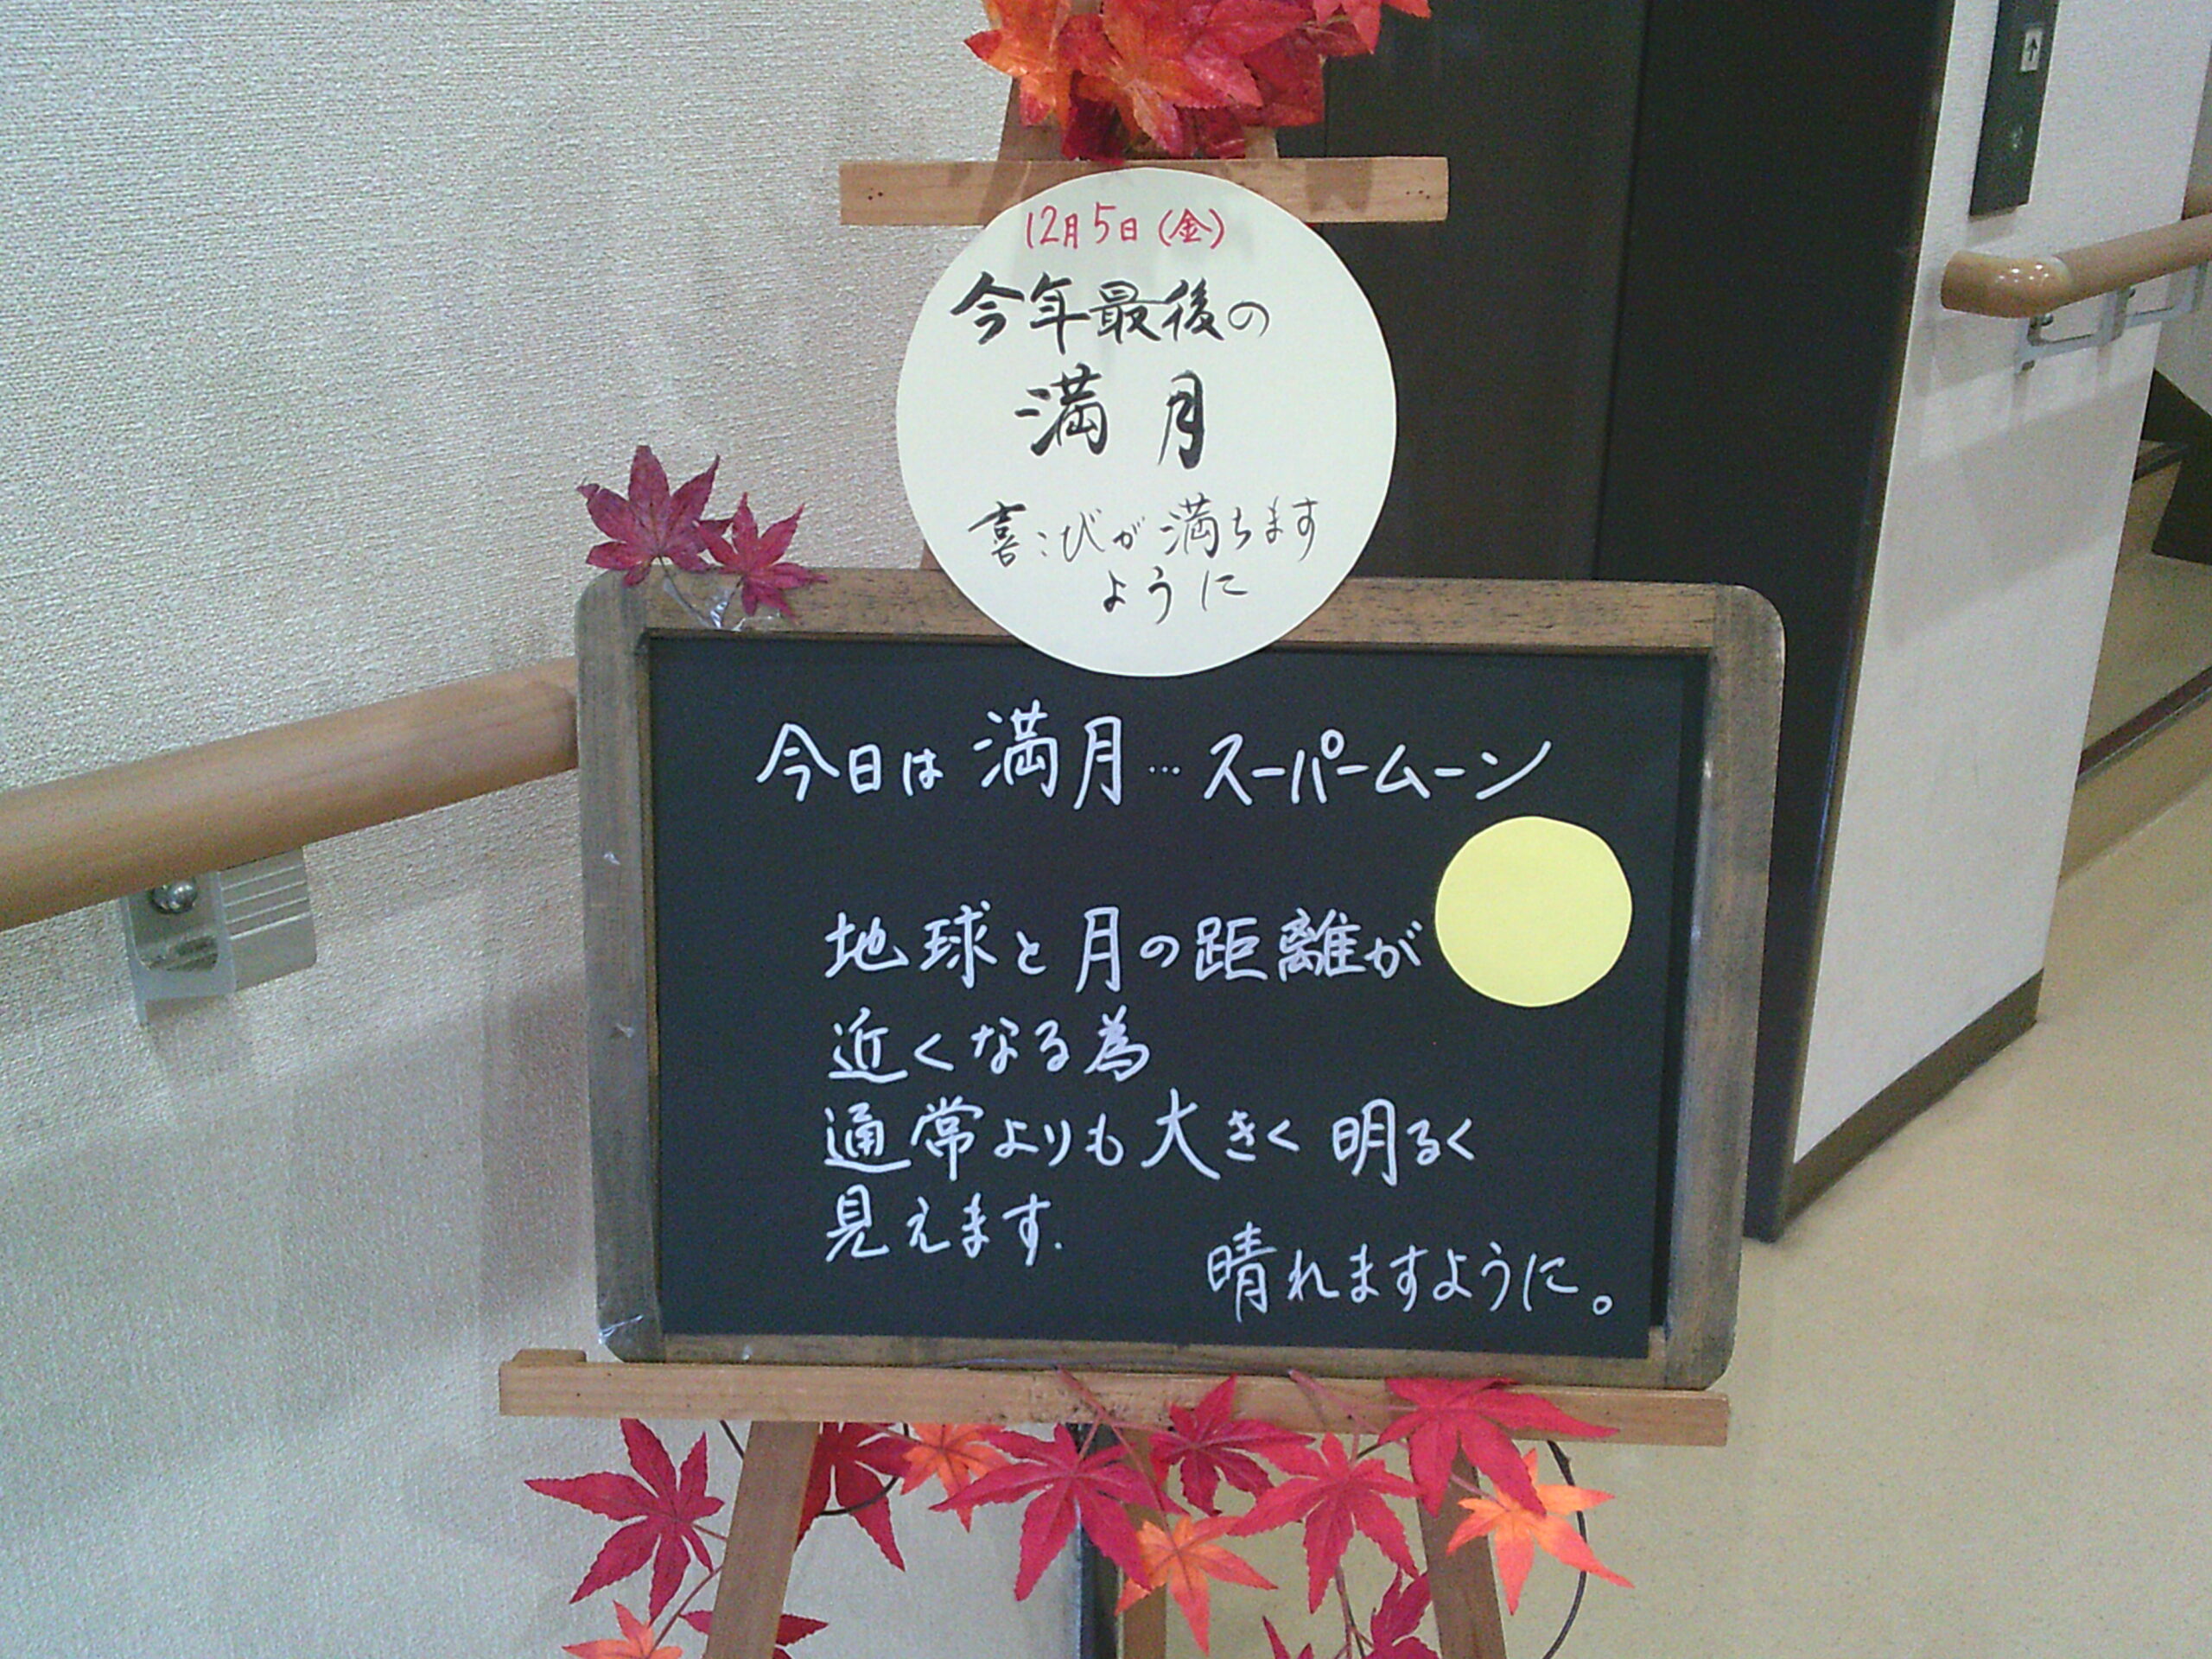 12月5日(金)
今年最後の
満月
喜こびが満ちます
ように
今日は満月…スーパームーン
地球と月の距離が
近くなる為
通常よりも大きく明るく
見えます.
晴れますように。